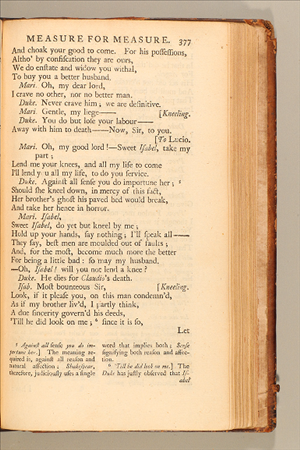 MEASURE FOR MEASURE. 377
And choak your good to come. For his possessions,
Altho' by confiscation they are ours,
We do enstate and widow you withal,
To buy you a better husband.
Mari. Oh, my dear lord,
I crave no other, nor no better man.
Duke. Never crave him; we are definitive.
Mari. Gentle, my liege—— [Kneeling.
Duke. You do but lose your labour——
Away with him to death——Now, Sir, to you.
[To Lucio.
Mari. Oh, my good lord!—Sweet Isabel, take my
part;
Lend me your knees, and all my life to come
I'll lend you all my life, to do you service.
Duke. Against all sense you do importune her; ⁵
Should she kneel down, in mercy of this fact,
Her brother's ghost his paved bed would break,
And take her hence in horror.
Mari. Isabel,
Sweet Isabel, do yet but kneel by me;
Hold up your hands, say nothing; I'll speak all——
They say, best men are moulded out of faults;
And, for the most, become much more the better
For being a little bad: so may my husband.
—Oh, Isabel! will you not lend a knee?
Duke. He dies for Claudio's death.
Isab. Most bounteous Sir, [Kneeling.
Look, if it please you, on this man condemn'd,
As if my brother liv'd, I partly think,
A due sincerity govern'd his deeds,
'Till he did look on me; ⁶ since it is so,
Let
⁵ Against all sense you do im-
portune her.] The meaning re-
quired is, against all reason and
natural affection; Shakespear,
therefore, judiciously uses a single
word that implies both; Sense
signifying both reason and affec-
tion.
⁶ 'Till he did look on me.] The
Duke has justly observed that Is-
abel